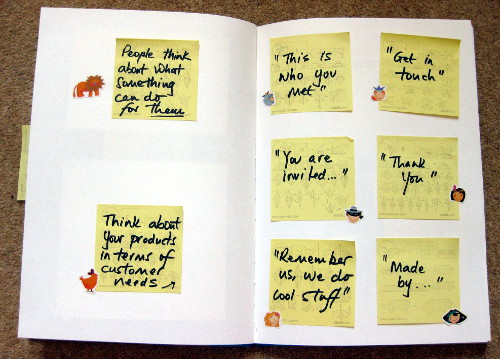 People think
about what
something
can do
for them
Think about
your products
in terms of
customer
needs
"This is
who you
met"
"Get in
touch"
"You are
invited..."
"Thank
You"
"Remember
us, we do
cool stuff"
"Made
by..."